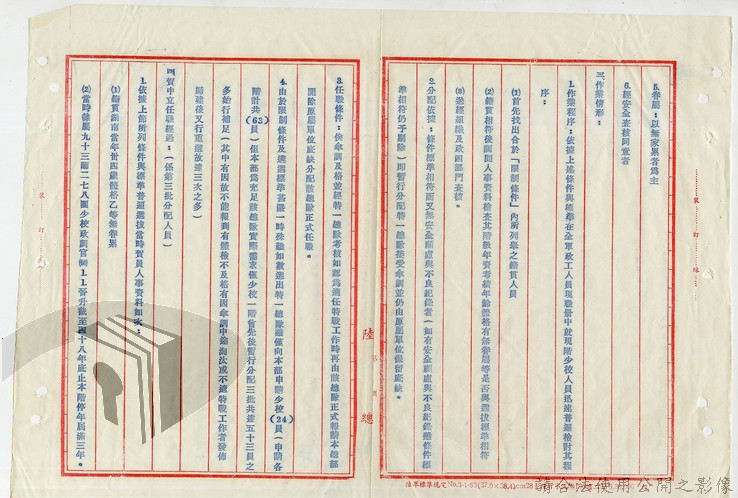 5.眷屬:以無家累者為主
6.經安全查核同意者
三、作業情形:
1.作業程序:依據上述條件與標準在全軍政工人員現職冊中就現階少校人員迅速普遍檢討其程
序:
(1)首先找出合於「限制條件」內所列舉之籍貫人員
(2)籍貫相符後調閱人事資料檢查其階級年資考績年齡體格有無眷屬等是否與選拔標準相符
(3)送經組織及政四部門查核。
2.分配依據:條件標準相符而又無安全顧慮與不良紀錄者(如有安全顧慮與不良紀錄雖條件標
準相符仍予剔除)即暫行分配特一總隊接受傘訓並仍由原屬單位保留底缺。
3.任職條件:俟傘訓及格並經特一總隊考核如認為適任特戰工作時再由該總隊正式報請本總部
開除原屬單位底缺分配該總隊正式任職。
4.由於限制條件及遴選標準甚嚴一時殊難如數選出特一總隊雖僅向本部申請少校(24)員(申請各
階計共(63)員)但本部為充足該總隊實際需求僅少校一階曾先後暫行分配三批共達五十三員之
多始行補足(其中有因故不能報到有體檢不及格有因傘訓中途淘汰或不適特戰工作者發佈
歸建後又行重選故達三次之多)
四、賀中立任職經過:(係第三批分配人員)
1.依據上節所列條件與標準普遍選拔當時賀員人事資料如次:
(1)籍貫湖南當年卅四歲體格乙等無眷累
(2)當時隸屬九十三師二七八團少校政訓官1.1.晉升截至四十八年底止本階停年屆滿三年。
裝 訂 線
裝 訂 線
陸 總
請合法使用公開之影像